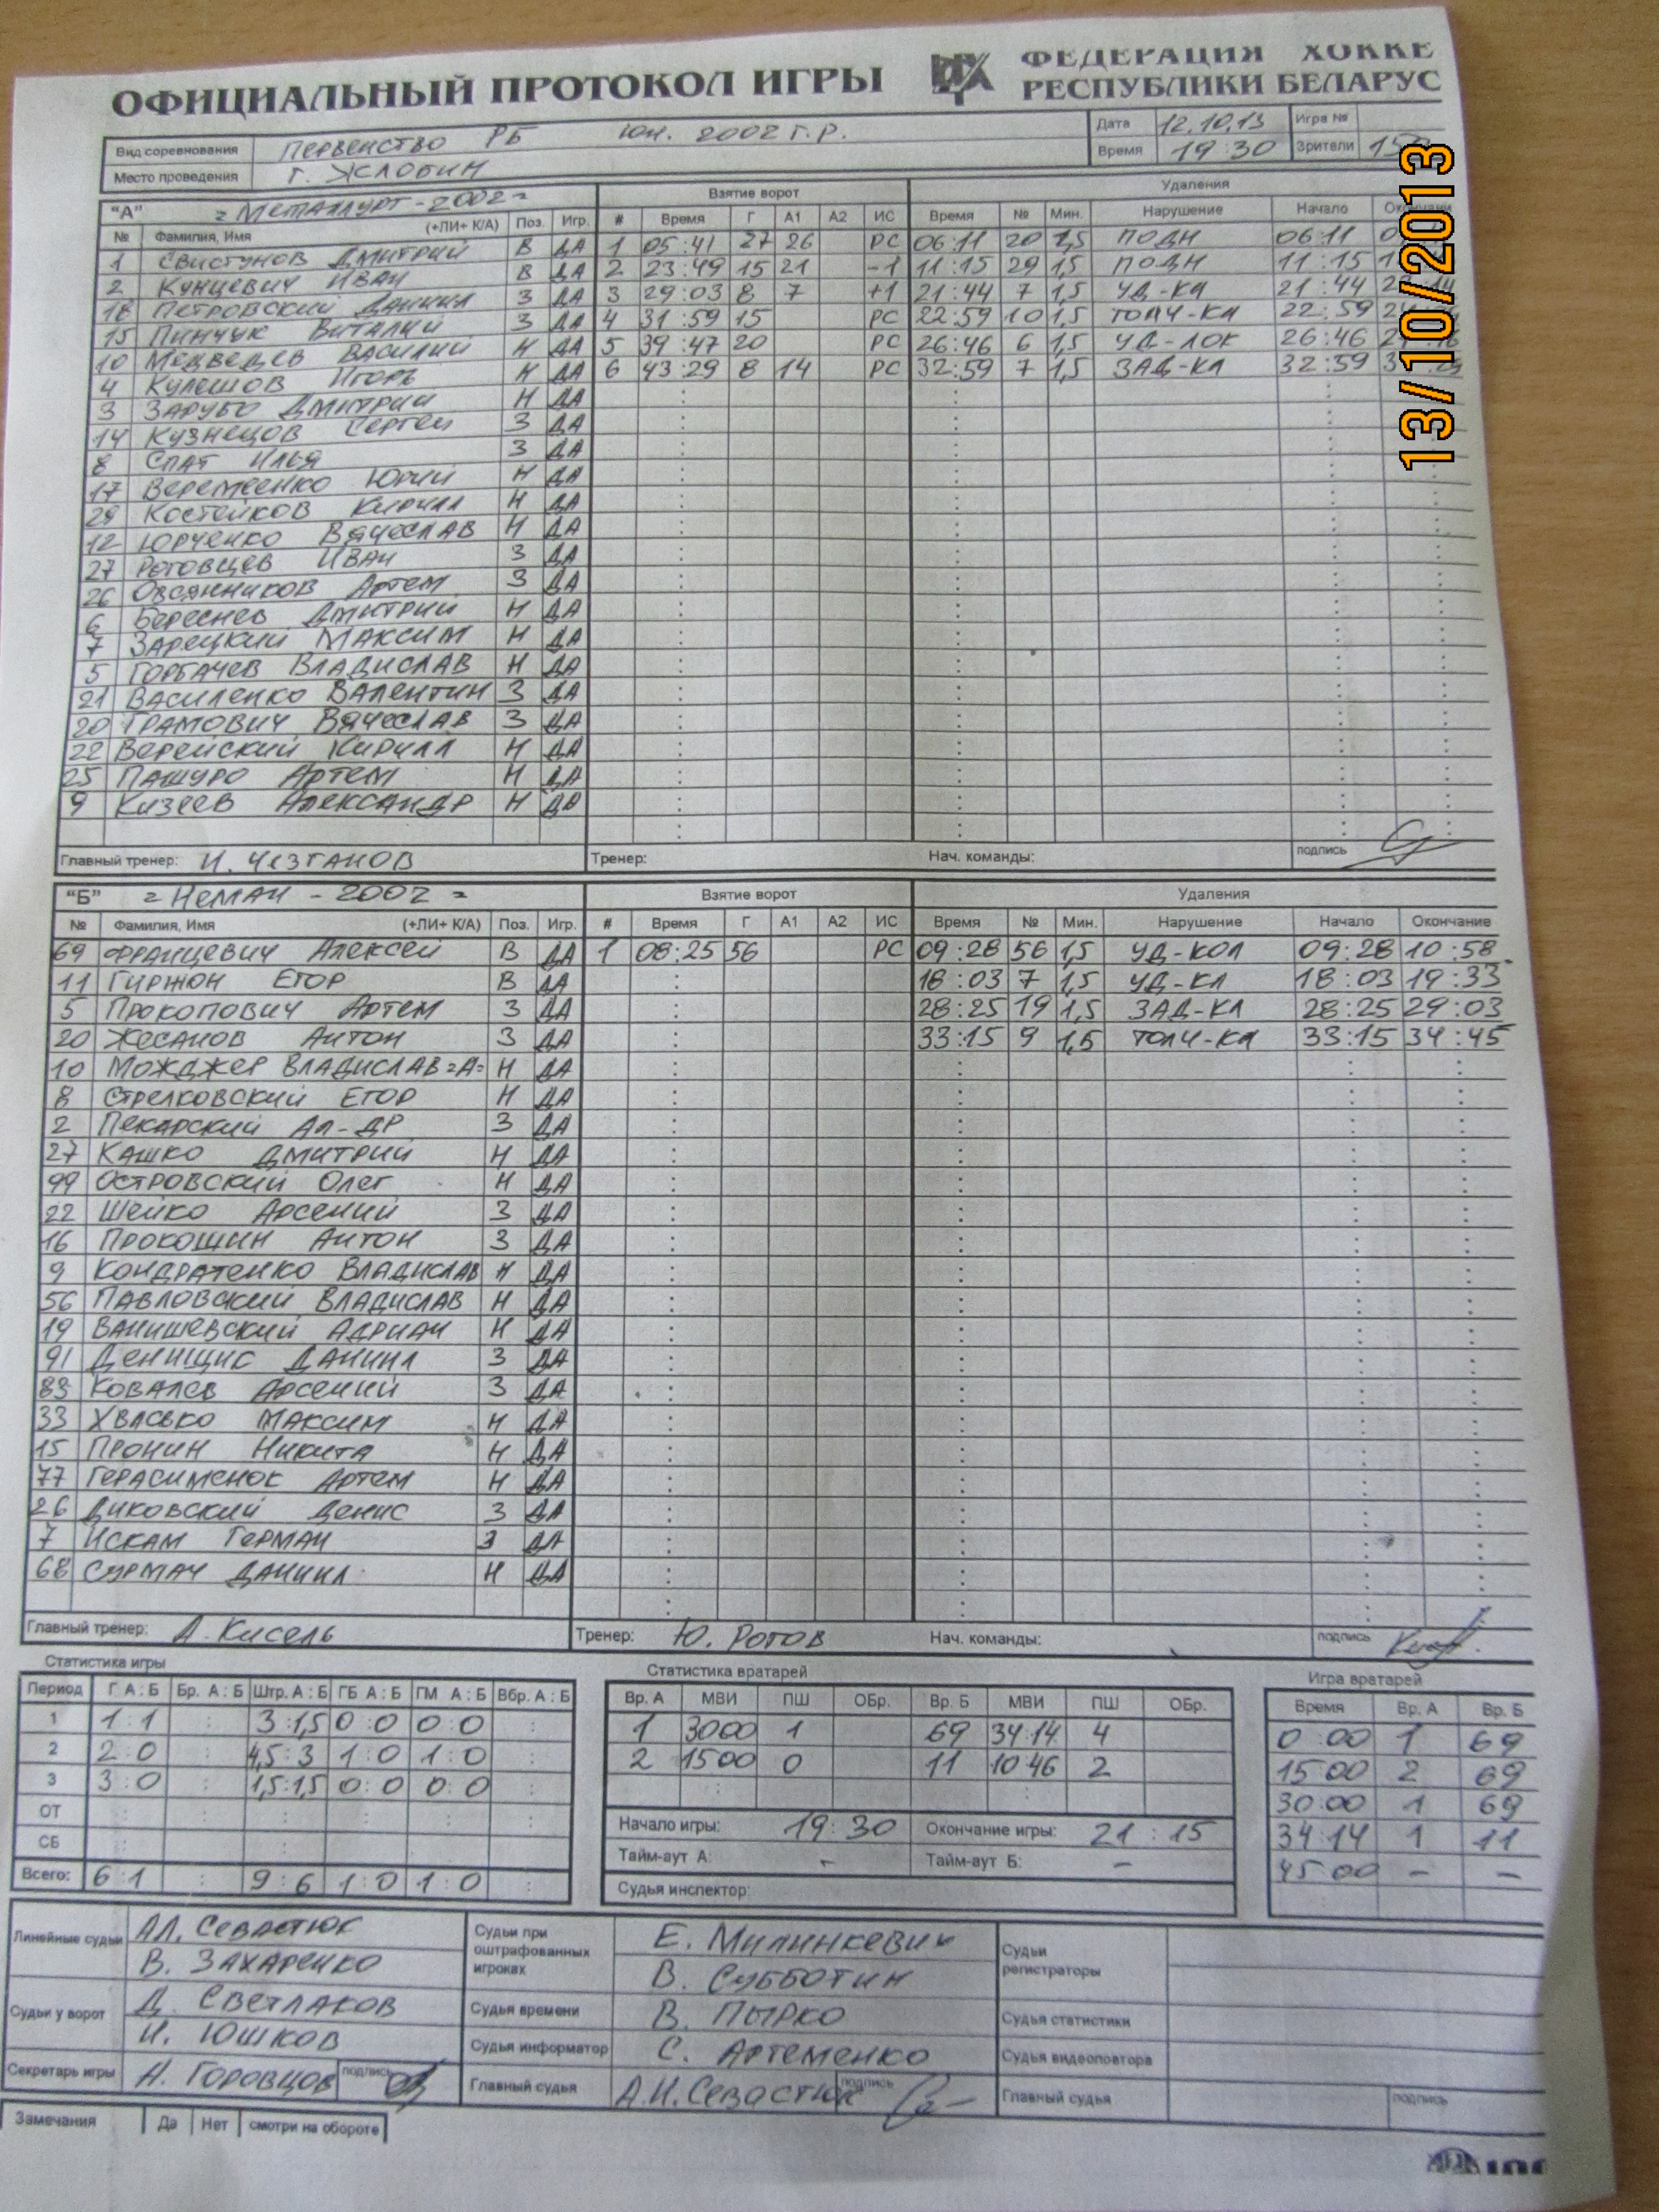 ОФИЦИАЛЬНЫЙ ПРОТОКОЛ ИГРЫ
ФЕДЕРАЦИЯ ХОККЕ
РЕСПУБЛИКИ БЕЛАРУС
Вид соревнования Первенство РБ юн. 2002 г.р. Дата 12.10.13 Игра №
Место проведения г. Жлобин Время 19 30 Зрители
13/10/2013
"А" Металлург-2002 Взятие ворот Удаления
№ Фамилия, Имя (+ЛИ+ К/А) Поз. Игр. # Время Г А1 А2 ИС Время № Мин. Нарушение Начало
1 Свистунов Дмитрий В ДА 1 05:41 27 26 РС 06:11 20 1,5 ПОДН 06:11
2 Кунцевич Иван В ДА 2 23:49 15 21 -1 11:15 29 1,5 ПОДН 11:15
18 Петровский Даниил З ДА 3 29:03 8 7 +1 21:44 7 1,5 УД-КЛ 21:44
15 Пинчук Виталий З ДА 4 31:59 15 РС 22:59 10 1,5 ТОЛЧ-КЛ 22:59
10 Медведев Василий Н ДА 5 39:47 20 РС 26:46 6 1,5 УД-ЛОК 26:46
4 Кулешов Игорь Н ДА 6 43:29 8 14 РС 32:59 7 1,5 ЗАД-КЛ 32:59
3 Зарубо Дмитрий Н ДА
14 Кузнецов Сергей З ДА
8 Спат Илья З ДА
17 Веремеенко Юрий Н ДА
29 Костейков Кирилл Н ДА
12 Юрченко Вячеслав Н ДА
27 Роговцев Иван З ДА
26 Овсянников Артем З ДА
6 Береснев Дмитрий Н ДА
7 Зарецкий Максим Н ДА
5 Горбачев Владислав Н ДА
21 Василенко Валентин З ДА
20 Грамович Вячеслав З ДА
22 Верейский Кирилл Н ДА
25 Пашуро Артем Н ДА
9 Кизеев Александр Н ДА
Главный тренер: И. Чезганов Тренер: Нач. команды: подпись
"Б" Неман-2002 Взятие ворот Удаления
№ Фамилия, Имя (+ЛИ+ К/А) Поз. Игр. # Время Г А1 А2 ИС Время № Мин. Нарушение Начало Окончание
69 Францевич Алексей В ДА 1 08:25 56 РС 09:28 56 1,5 УД-КОЛ 09:28 10:58
11 Гиржон Егор В ДА 18:03 7 1,5 УД-КЛ 18:03 19:33
5 Прокопович Артем З ДА 28:25 19 1,5 ЗАД-КЛ 28:25 29:03
20 Жесанов Антон З ДА 33:15 9 1,5 ТОЛЧ-КЛ 33:15 34:45
10 Можджер Владислав =А= Н ДА
8 Стрелковский Егор Н ДА
2 Пекарский Ал-др З ДА
27 Кашко Дмитрий Н ДА
99 Островский Олег Н ДА
22 Шейко Арсений З ДА
16 Прокошин Антон З ДА
9 Кондратенко Владислав Н ДА
56 Павловский Владислав Н ДА
19 Ванишевский Адриан Н ДА
91 Денищис Даниил З ДА
89 Ковалев Арсений З ДА
33 Хвасько Максим Н ДА
15 Пронин Никита Н ДА
77 Герасименок Артем Н ДА
26 Диковский Денис З ДА
7 Искам Герман З ДА
68 Сурмач Даниил Н ДА
Главный тренер: А. Кисель Тренер: Ю. Рогов Нач. команды: подпись
Статистика игры Статистика вратарей Игра вратарей
Период Г А:Б Бр. А:Б Штр. А:Б ГБ А:Б ГМ А:Б Вбр. А:Б Вр. А МВИ ПШ ОБр. Вр. Б МВИ ПШ ОБр. Время Вр. А Вр. Б
1 1:1 3:1,5 0:0 0:0 1 3000 1 69 34:14 4 0:00 1 69
2 2:0 4,5:3 1:0 1:0 2 1500 0 11 10 46 2 15 00 2 69
3 3:0 1,5:1,5 0:0 0:0 30:00 1 69
ОТ Начало игры: 19:30 Окончание игры: 21:15 34:14 1 11
СБ Тайм-аут А: – Тайм-аут Б: – 45 00 – –
Всего: 6:1 9:6 1:0 1:0 Судья инспектор:
Линейные судьи Ал. Севастюк
В. Захаренко
Судьи при оштрафованных игроках Е. Милинкевич
В. Субботин
Судьи регистраторы
Судьи у ворот Д. Светлаков
И. Юшков
Судья времени В. Пырко
Судья статистики
Судья информатор С. Артеменко
Судья видеоповтора
Секретарь игры Н. Горовцов подпись Главный судья А.И. Севастюк подпись Главный судья подпись
Замечания Да Нет смотри на обороте